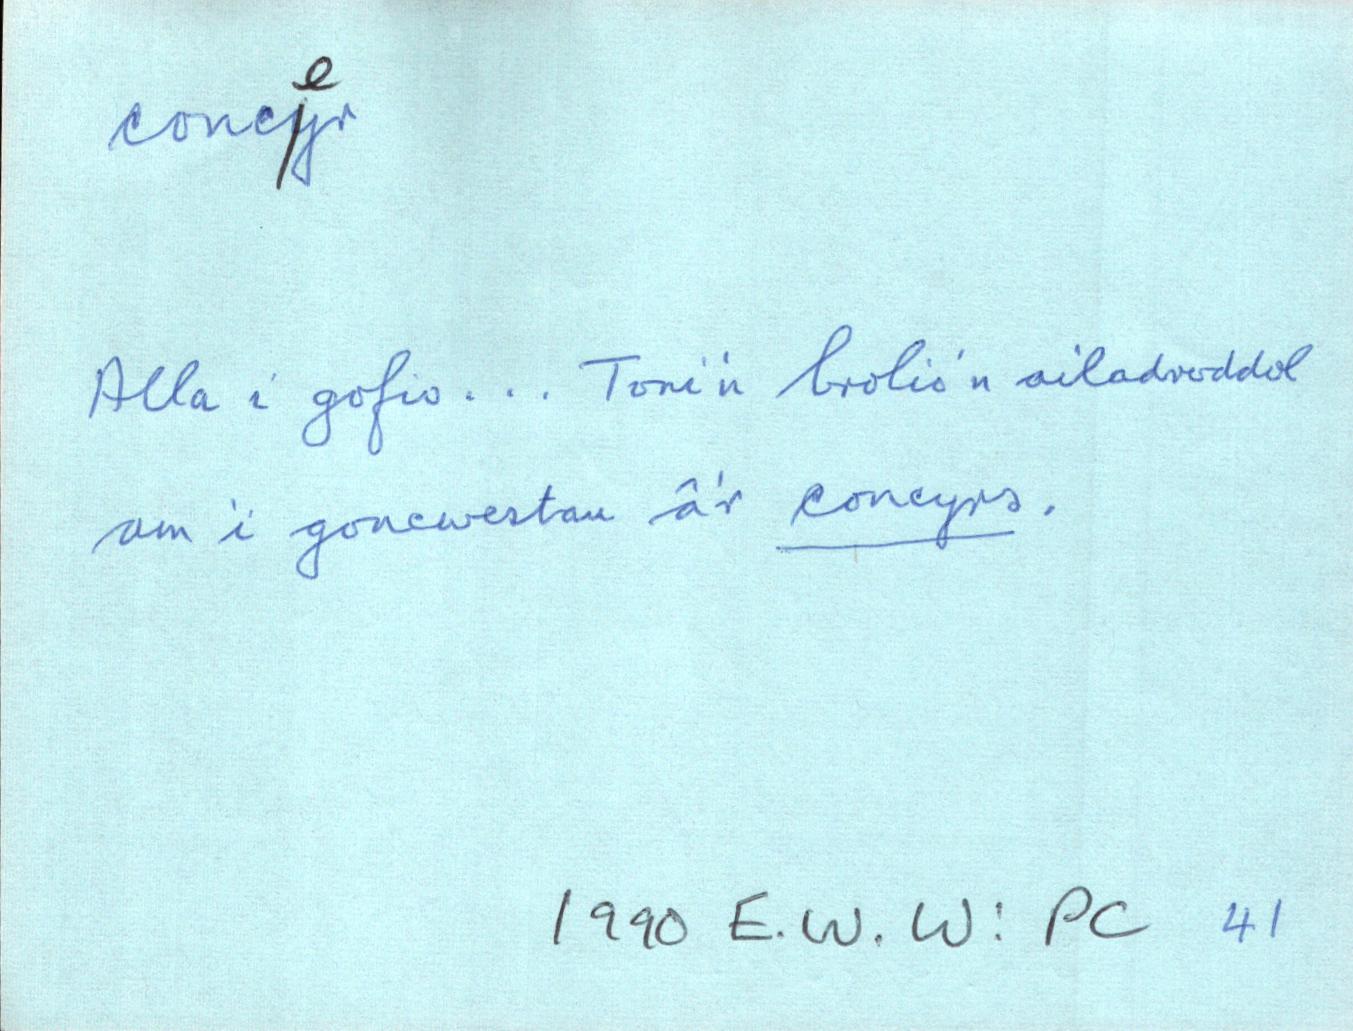 concyr
e
Alla i gofio... Toni'n brolio'n ailadroddol
am i goncwestau â'r concyrs.
1990 E.W.W: PC 41